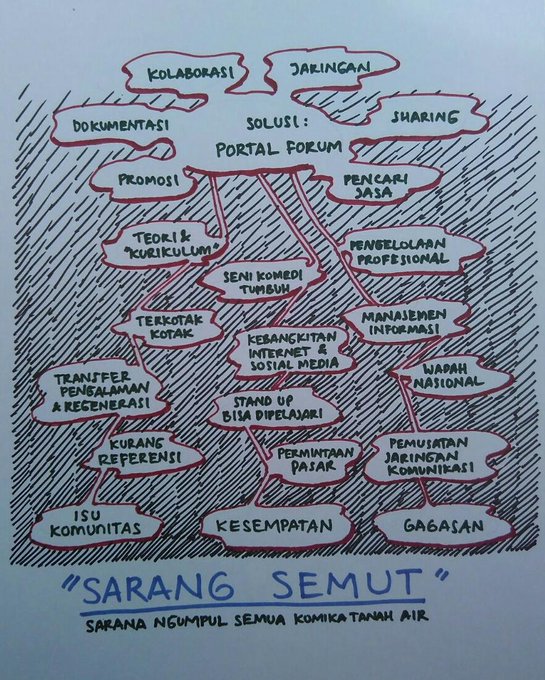 KOLABORASI
JARINGAN
DOKUMENTASI
SOLUSI:
PORTAL FORUM
SHARING
PROMOSI
PENCARI
JASA
TEORI &
"KURIKULUM"
SENI KOMEDI
TUMBUH
PENGELOLAAN
PROFESIONAL
TERKOTAK
KOTAK
KEBANGKITAN
INTERNET &
SOSIAL MEDIA
MANAJEMEN
INFORMASI
TRANSFER
PENGALAMAN
& REGENERASI
STAND UP
BISA DIPELAJARI
WADAH
NASIONAL
KURANG
REFERENSI
PERMINTAAN
PASAR
PEMUSATAN
JARINGAN
KOMUNIKASI
ISU
KOMUNITAS
KESEMPATAN
GAGASAN
"SARANG SEMUT"
SARANA NGUMPUL SEMUA KOMIKA TANAH AIR